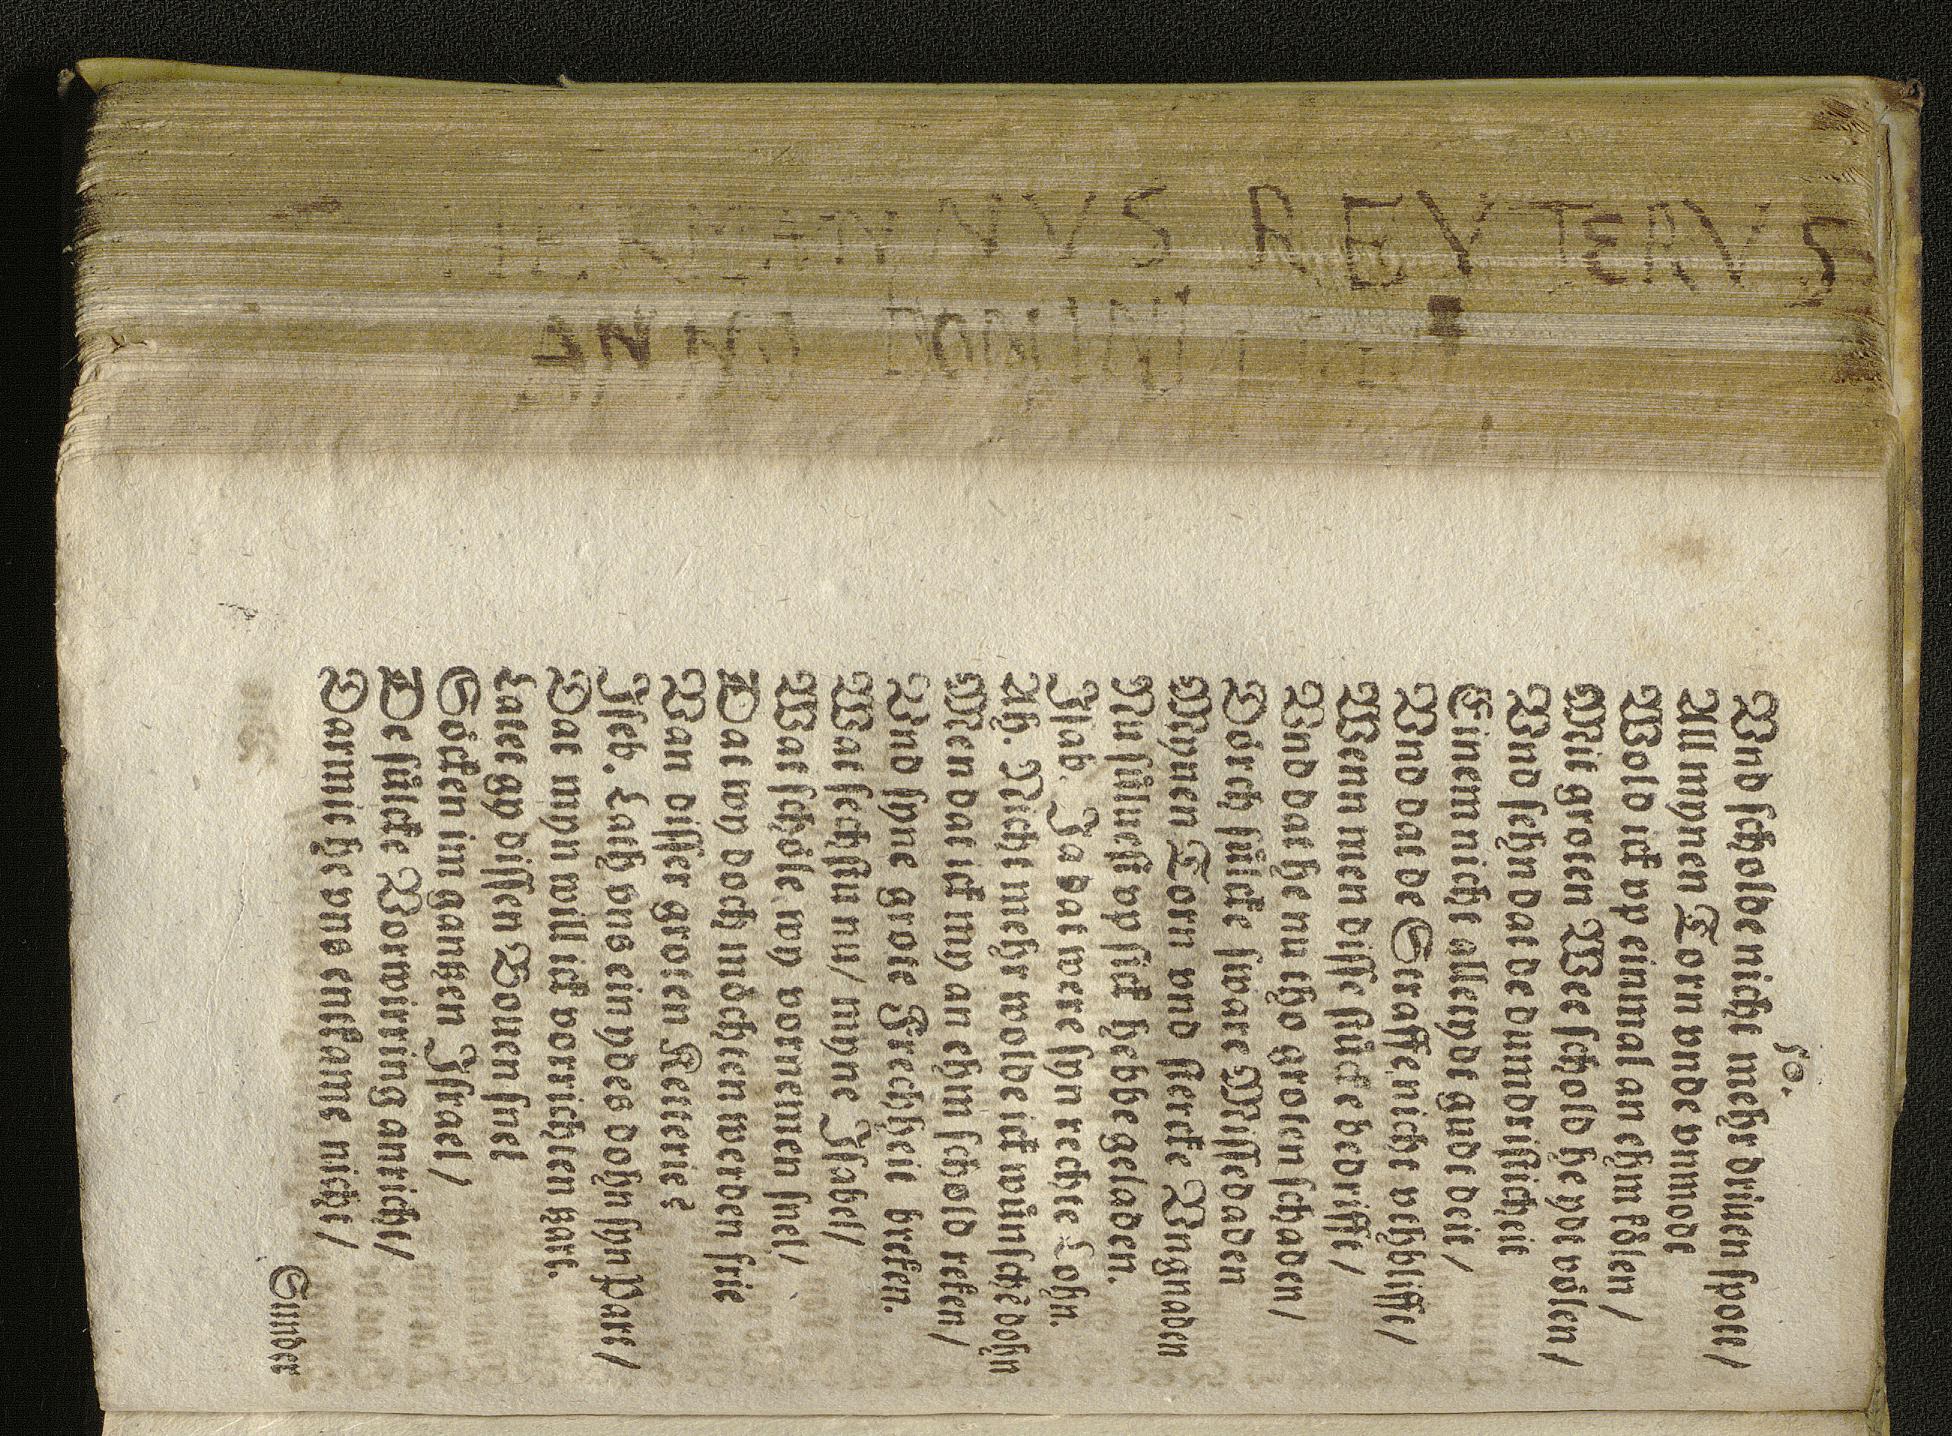 HERMANNVS REVTERVS
ANNO DOMINI
50.
Vnd scholde nicht mehr driuen spott/
All mynen Torn vnde vnmodt
Wold ick vp einmal an ehm kölen/
Mit groten Wee scholdt he ydt völen/
Vnd sehn dat de dumdristicheit
Einem nicht alletydt gude deit/
Vnd dat de Straffe nicht vthblifft/
Wenn men disse stücke bedrifft/
Vnd dat he nu tho groten schaden/
Dorch stücke sware Missedaden
Mynen Torn vnd sterke Vngnaden
Nu süluest vp sick hebbe geladen.
Isab. Ja dat were syn rechte Lohn.
Ah. Nicht mehr wolde ick wünschē dohn
Men dat ick my an ehm scholdt reken/
Vnd syne grote Frechheit breken.
Wat sechstu nu/ myne Isabel/
Wat schole wy vornemen snel/
Dat wy doch möchten werden frie
Van disser groten Ketterie?
Iseb. Lath vns ein ydes dohn syn Part/
Dat myn will ick vorrichten hart.
Latet gy dissen Bouen snel
Söken im gantzen Israel/
De sülcke Vorwirring anricht/
Darmit he vns entkame nicht/
Sunder